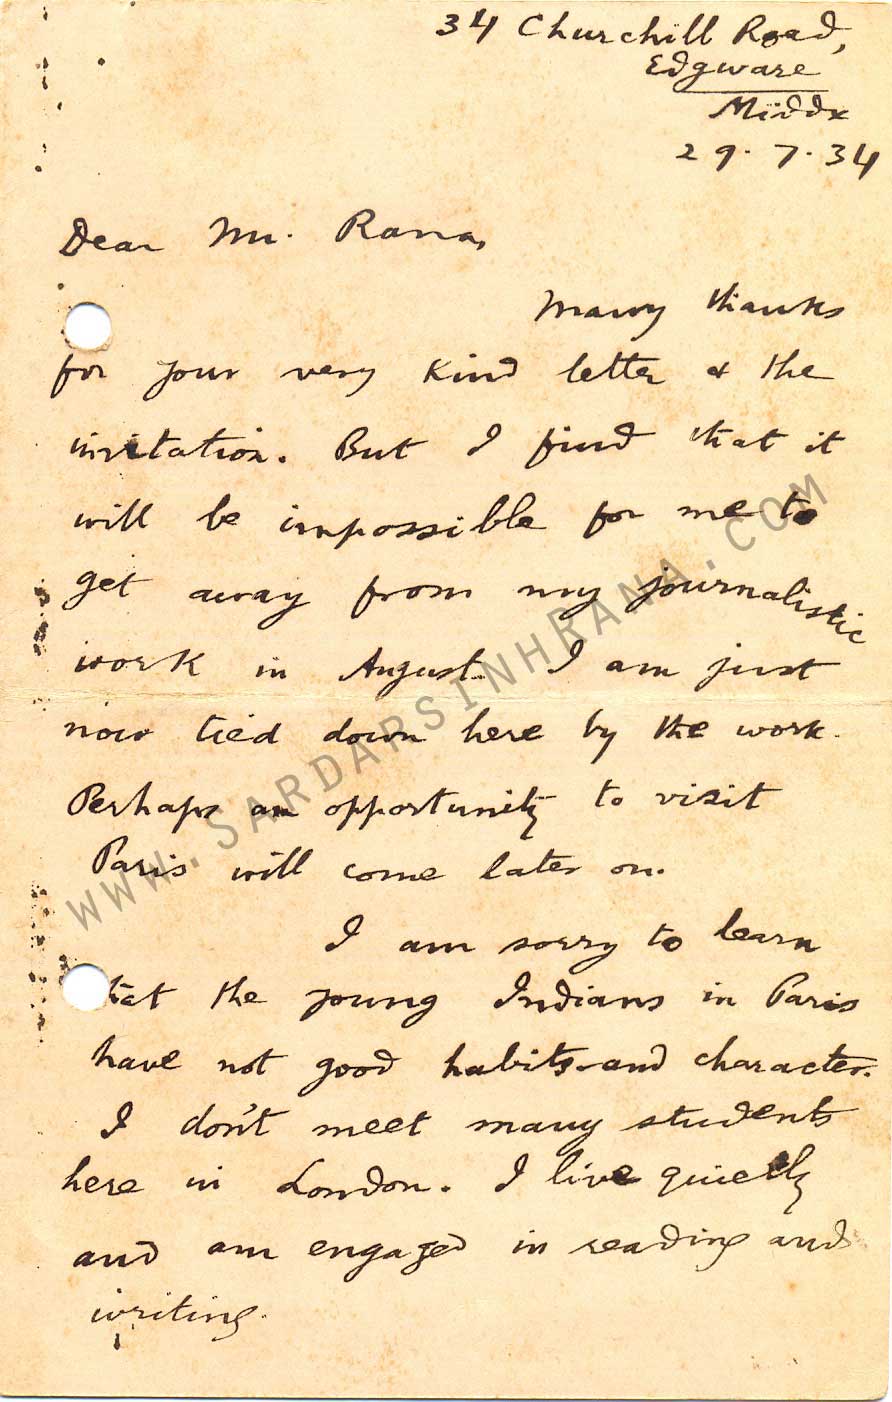 34 Churchill Road,
Edgware
Middx
29.7.34
Dear Mr. Rana,
Many thanks
for your very kind letter & the
invitation. But I find that it
will be impossible for me to
get away from my journalistic
work in August. I am just
now tied down here by the work.
Perhaps an opportunity to visit
Paris will come later on.
I am sorry to learn
that the young Indians in Paris
have not good habits and character.
I don't meet many students
here in London. I live quietly
and am engaged in reading and
writing.
WWW.SARDARSINHRANA.COM